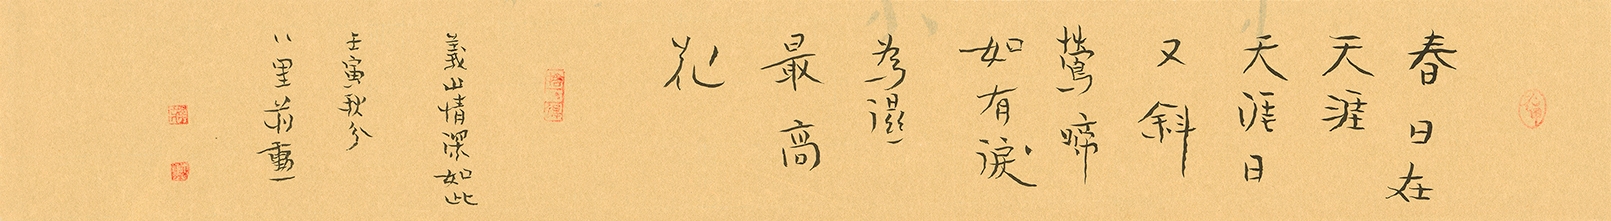 春日在
天涯
天涯日
又斜
鶯啼
如有淚
為濕
最高
花
義山情深如此
壬寅秋分
八里莊